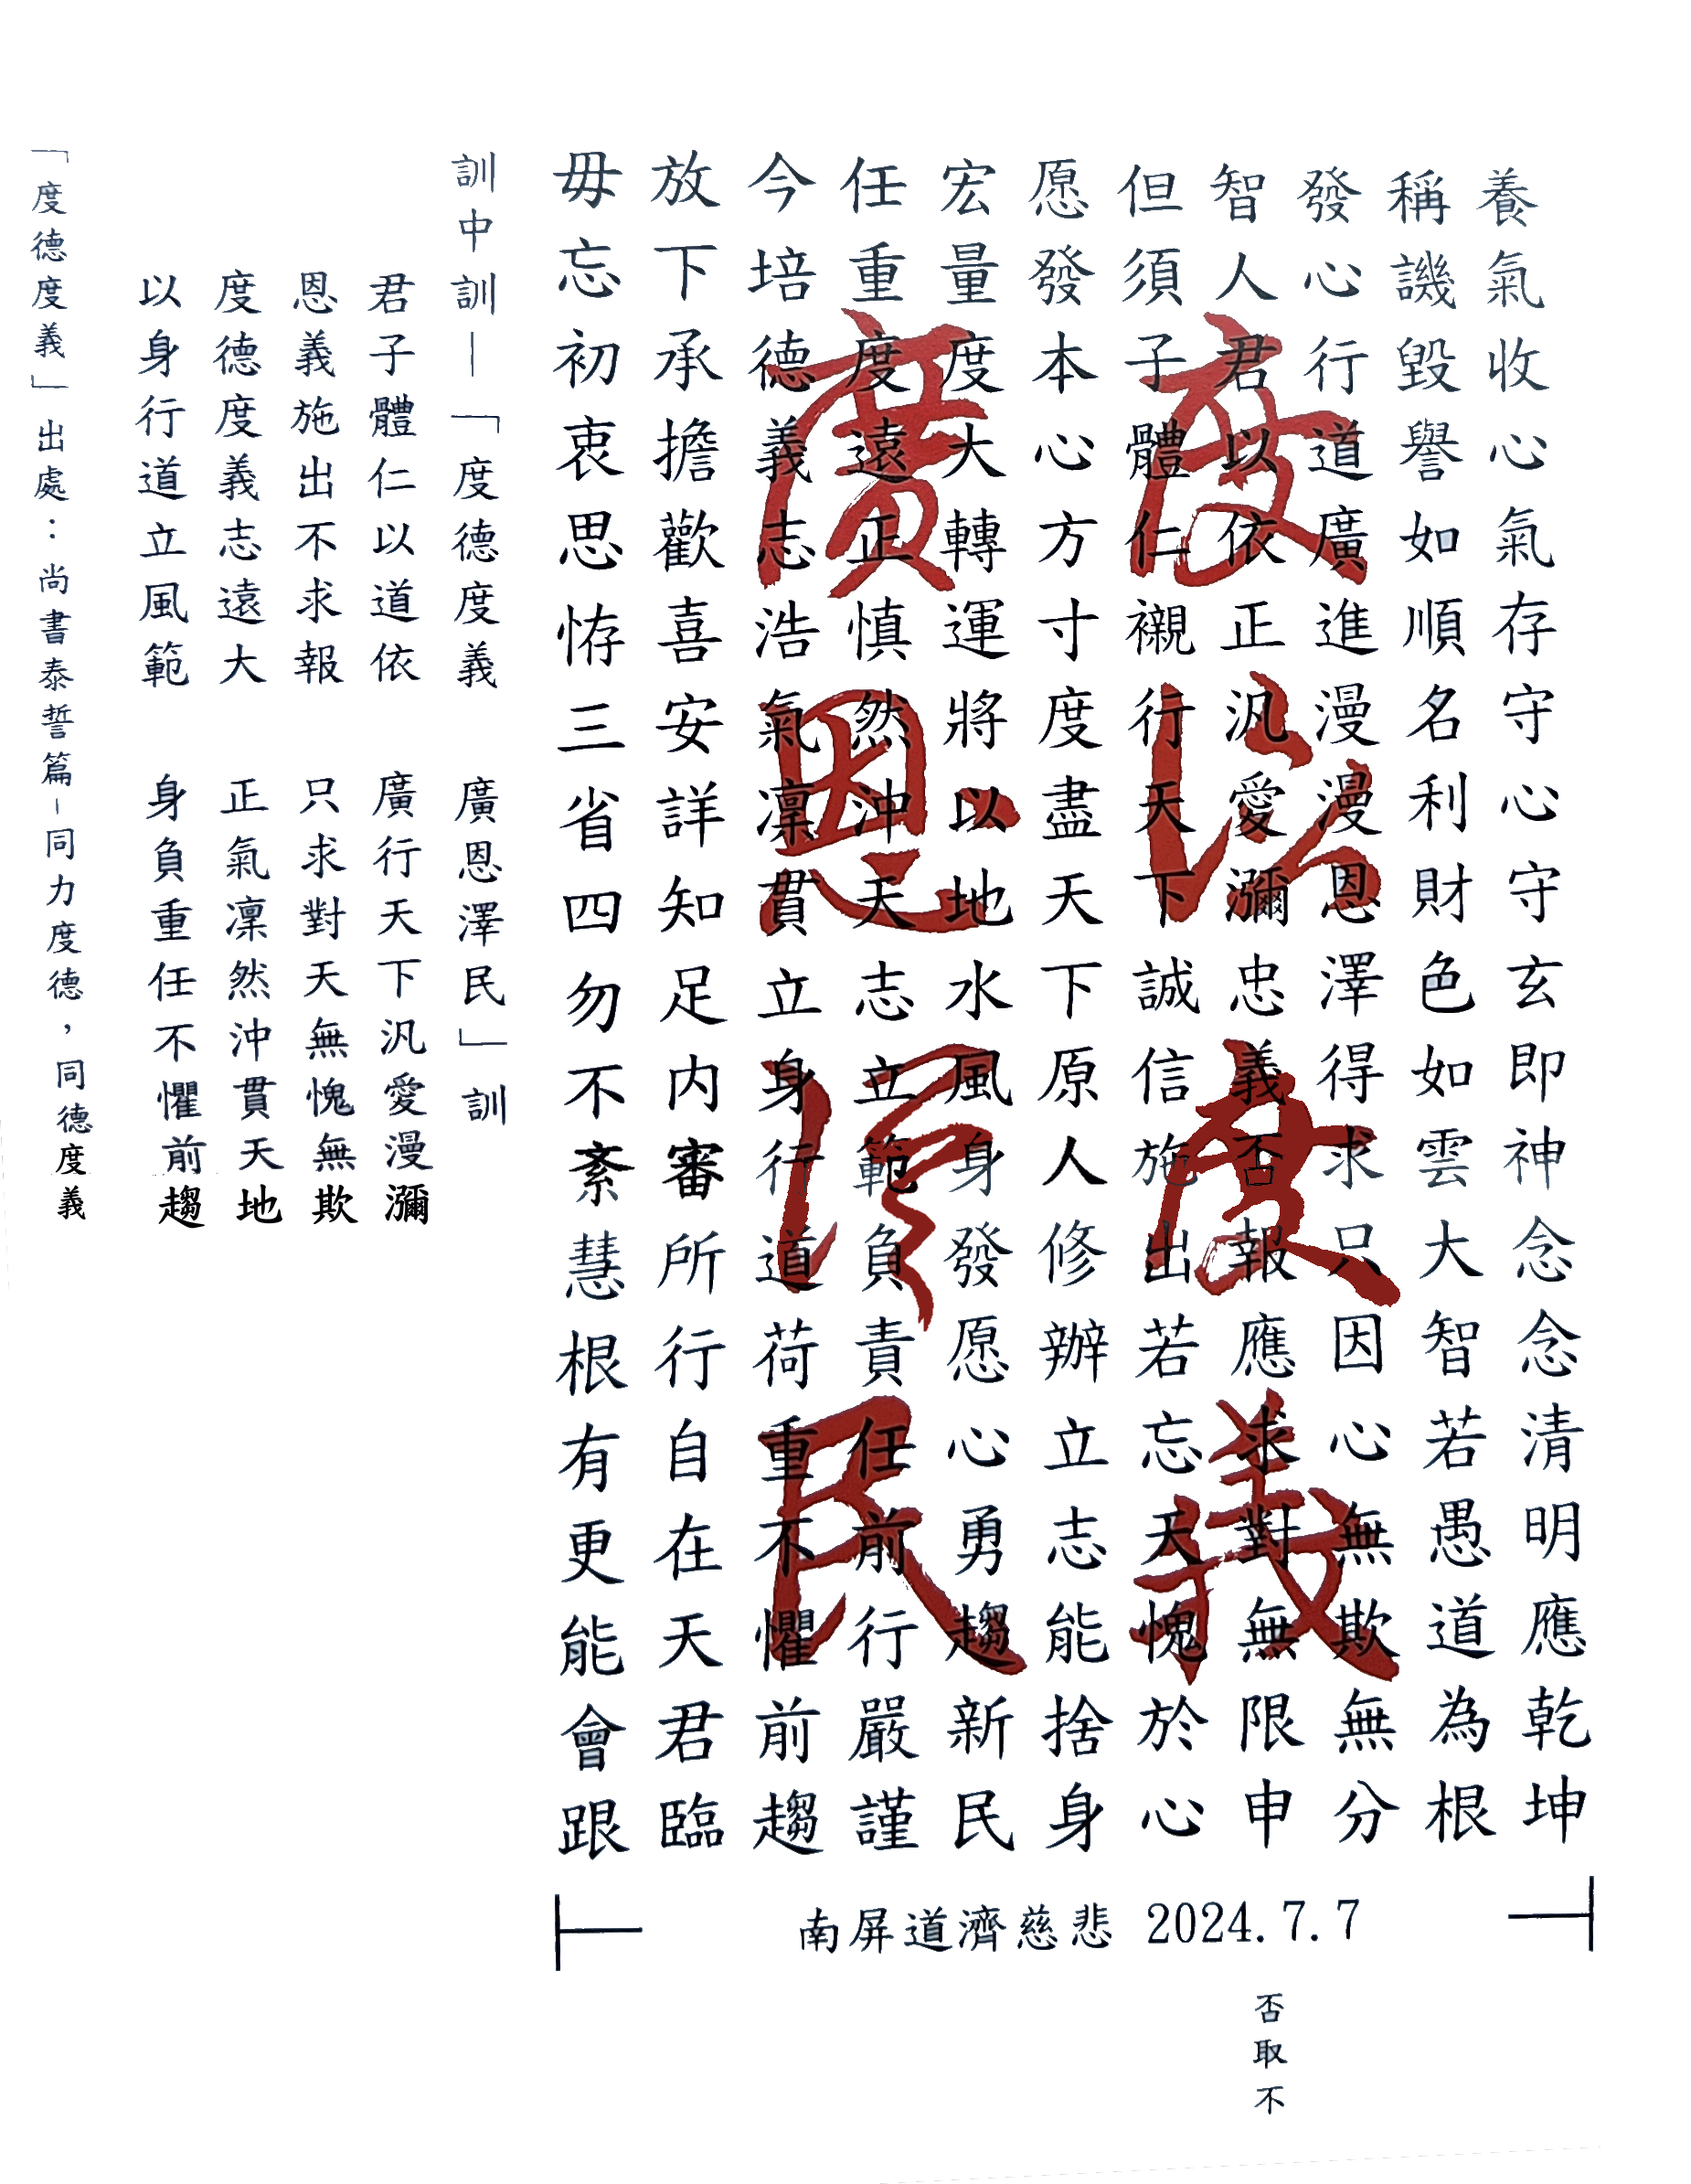 養氣收心氣存守心守玄即神念念清明應乾坤
稱譏毀譽如順名利財色如雲大智若愚道為根
發心行道廣進漫漫恩澤得求只因心無欺無分
智人君以依正汎愛瀰忠義否報應求對無限申
但須子體仁襯行天下誠信施出若忘天愧於心
愿發本心方寸度盡天下原人修辦立志能捨身
宏量度大轉運將以地水風身發愿心勇趨新民
任重度遠正慎然沖天志立範負責任前行嚴謹
今培德義志浩氣凜貫立身行道荷重不懼前趨
放下承擔歡喜安詳知足內審所行自在天君臨
毋忘初衷思三省四勿不紊慧根有更能會跟
度德度義
廣恩澤民
南屏道濟慈悲 2024.7.7
否取不
訓中訓—「度德度義 廣恩澤民」訓
君子體仁以道依 廣行天下汎愛漫瀰
恩義施出不求報 只求對天無愧無欺
度德度義志遠大 正氣凜然沖貫天地
以身行道立風範 身負重任不懼前趨
「度德度義」出處：尚書泰誓篇-同力度德，同德度義